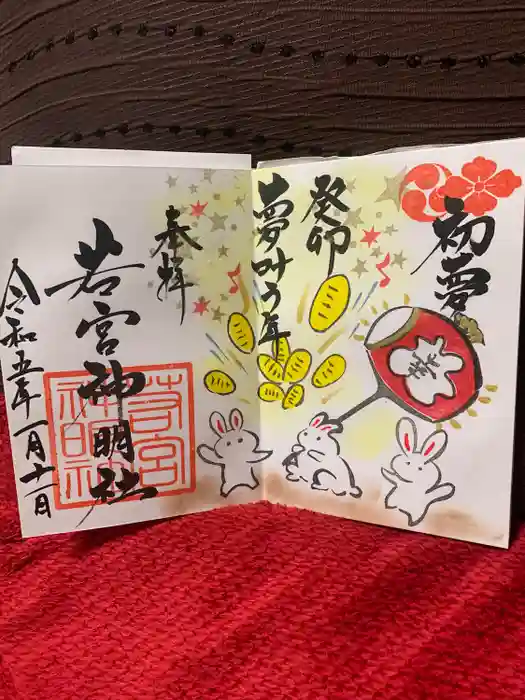 初夢
癸卯
夢叶う年
奉拝
若宮神明社
若宮
神明社
令和五年一月十一日